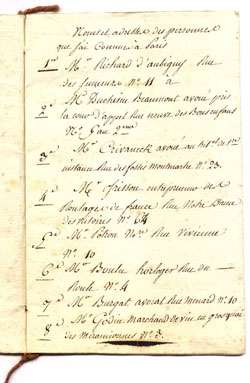 Noms et adresses des personnes
que j'ai connues à Paris
1er Mr Richard d'aubigny Rue
des N° 11 à
2e Mr Duchesne Beaumont avoué près
la cour d'appel Rue neuve des Bons enfans
N°
3e Mr avoué au de 1ere
instance Rue des fossés montmartre N° 23.
4e Mr frisson entrepreneur de
Roulages de france Rue Notre Dame
des Victoires N° 64
5e Mr Potron Nore Rue Vivienne
N° 10
6e Mr Boulu horloger Rue du
Roule N° 4
7e Mr Burgat avocat Rue menard N° 10
8e Mr Godin Marchand de vin en gros quai
des miramionnes N° 3.